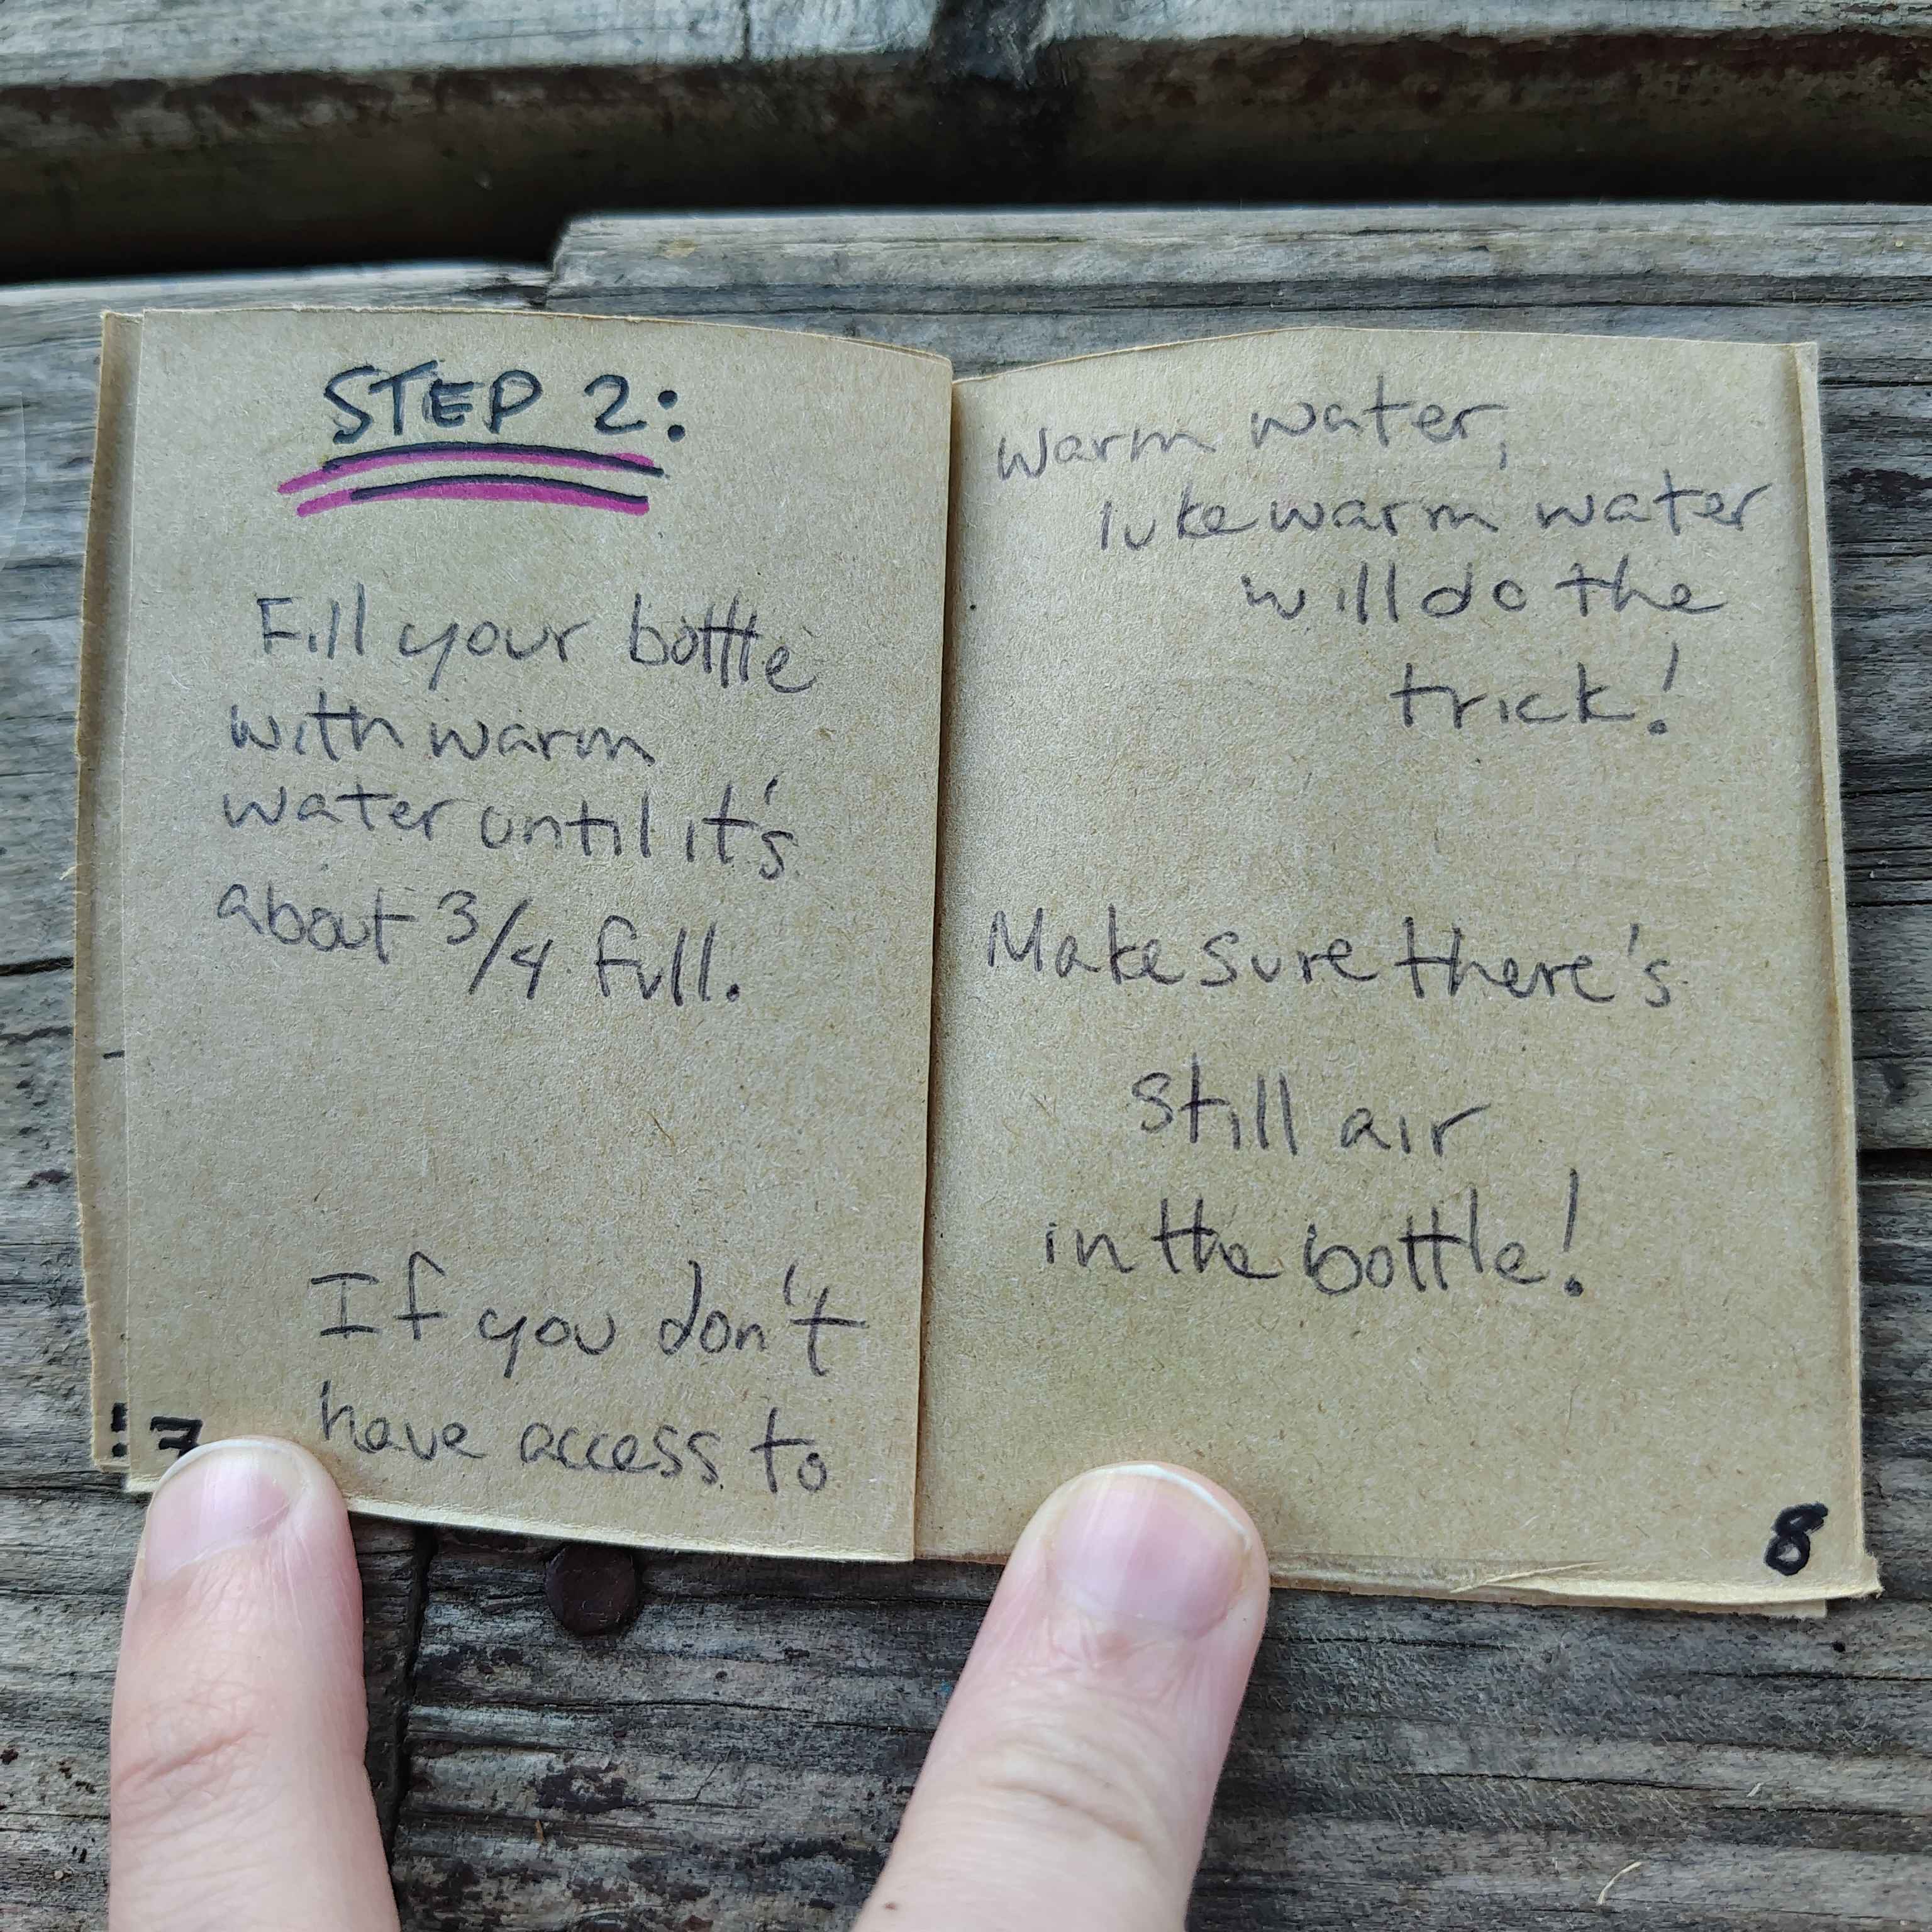 STEP 2:
Fill your bottle
with warm
water until it's
about 3/4 full.
If you don't
have access to
7
warm water,
lukewarm water
will do the
trick!
Make sure there's
still air
in the bottle!
8